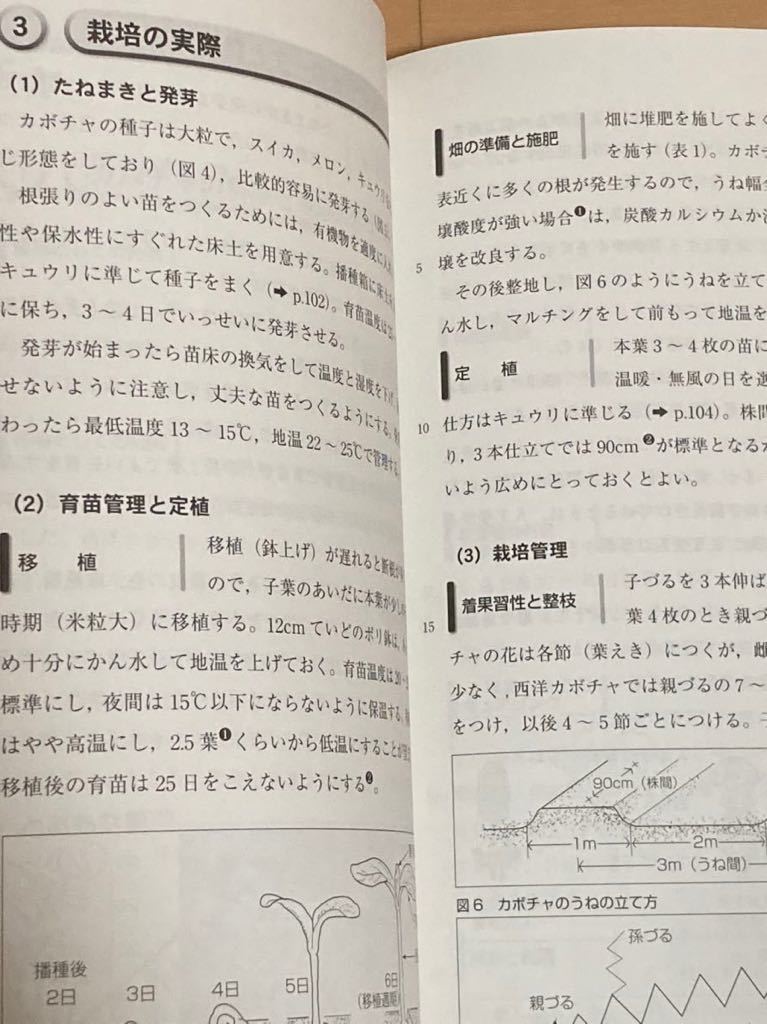 3 栽培の実際
(1) たねまきと発芽
カボチャの種子は大粒で，スイカ，メロン，キュウリ
じ形態をしており（図4），比較的容易に発芽する（図
根張りのよい苗をつくるためには，有機物を適度に
性や保水性にすぐれた床土を用意する。播種箱に床土
キュウリに準じて種子をまく（➡ p.102）。育苗温度は
に保ち，3～4日でいっせいに発芽させる。
発芽が始まったら苗床の換気をして温度と湿度を下げ，
せないように注意し，丈夫な苗をつくるようにする。
わったら最低温度 13～15℃，地温 22～25℃で管理する。
(2) 育苗管理と定植
移 植
移植（鉢上げ）が遅れると断根が
ので，子葉のあいだに本葉が少し
時期（米粒大）に移植する。12cm ていどのポリ鉢は，
め十分にかん水して地温を上げておく。育苗温度は20～
標準にし，夜間は 15℃以下にならないように保温する。
はやや高温にし，2.5 葉❶くらいから低温にすること
移植後の育苗は 25 日をこえないようにする❷。
播種後
2日
3日
4日
5日
6日
(移植適期)
畑の準備と施肥
畑に堆肥を施してよく
を施す（表1）。カボチ
表近くに多くの根が発生するので，うね幅全
壌酸度が強い場合❶は，炭酸カルシウムか
5 壌を改良する。
その後整地し，図6のようにうねを立て
ん水し，マルチングをして前もって地温を
定 植
本葉3～4枚の苗に
温暖・無風の日を選
10 仕方はキュウリに準じる（➡ p.104）。株間
り，3本仕立てでは90cm❷が標準となるが
いよう広めにとっておくとよい。
(3) 栽培管理
着果習性と整枝
子づるを3本伸ば
15 葉4枚のとき親づ
チャの花は各節（葉えき）につくが，雌
少なく，西洋カボチャでは親づるの7～
をつけ，以後4～5節ごとにつける。子
90cm（株間）
1m
2m
3m（うね間）
図6 カボチャのうねの立て方
孫づる
親づる